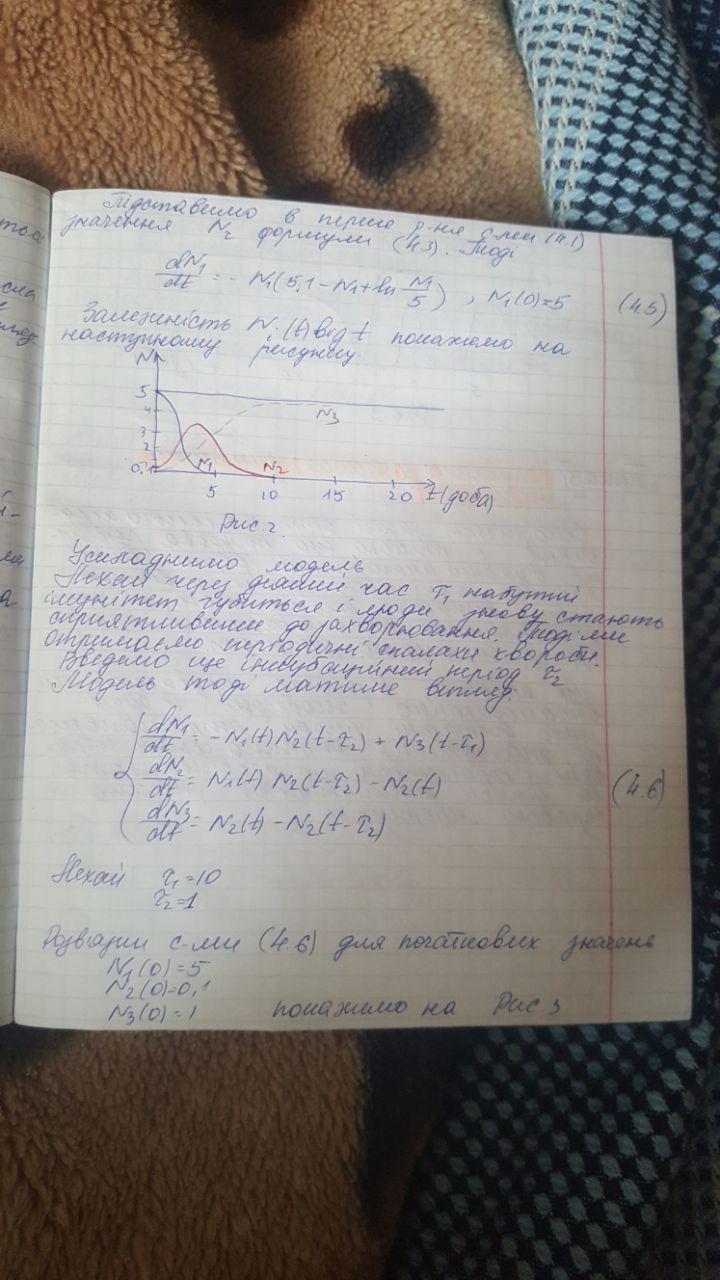 Підставимо в перше р-ня с-ми (4.1)
значення N₂ формули (4.3). Тоді
dN₁/dt = - N₁(5,1 - N₁ + ln N₁/5) , N₁(0)=5 (4.5)
Залежність Nᵢ(t) від t покажемо на
наступному рисунку.
N
5
4
3
2
0.1
N₁
N₂
N₃
5 10 15 20 t(доба)
Рис. 2.
Ускладнимо модель
Нехай через деякий час τ₁ набутий
імунітет губиться і люди знову стають
сприятливими до захворювання. Тоді ми
отримаємо періодичні спалахи хвороби.
Введемо ще інкубаційний період τ₂
Модель тоді матиме вигляд.
dN₁/dt = - N₁(t)N₂(t-τ₂) + N₃(t-τ₁)
dN₂/dt = N₁(t) N₂(t-τ₂) - N₂(t) (4.6)
dN₃/dt = N₂(t) - N₂(t-τ₂)
Нехай τ₁=10
τ₂=1
Розв'язки с-ми (4.6) для початкових значень
N₁(0)=5
N₂(0)=0,1
N₃(0)=1 покажемо на Рис 3